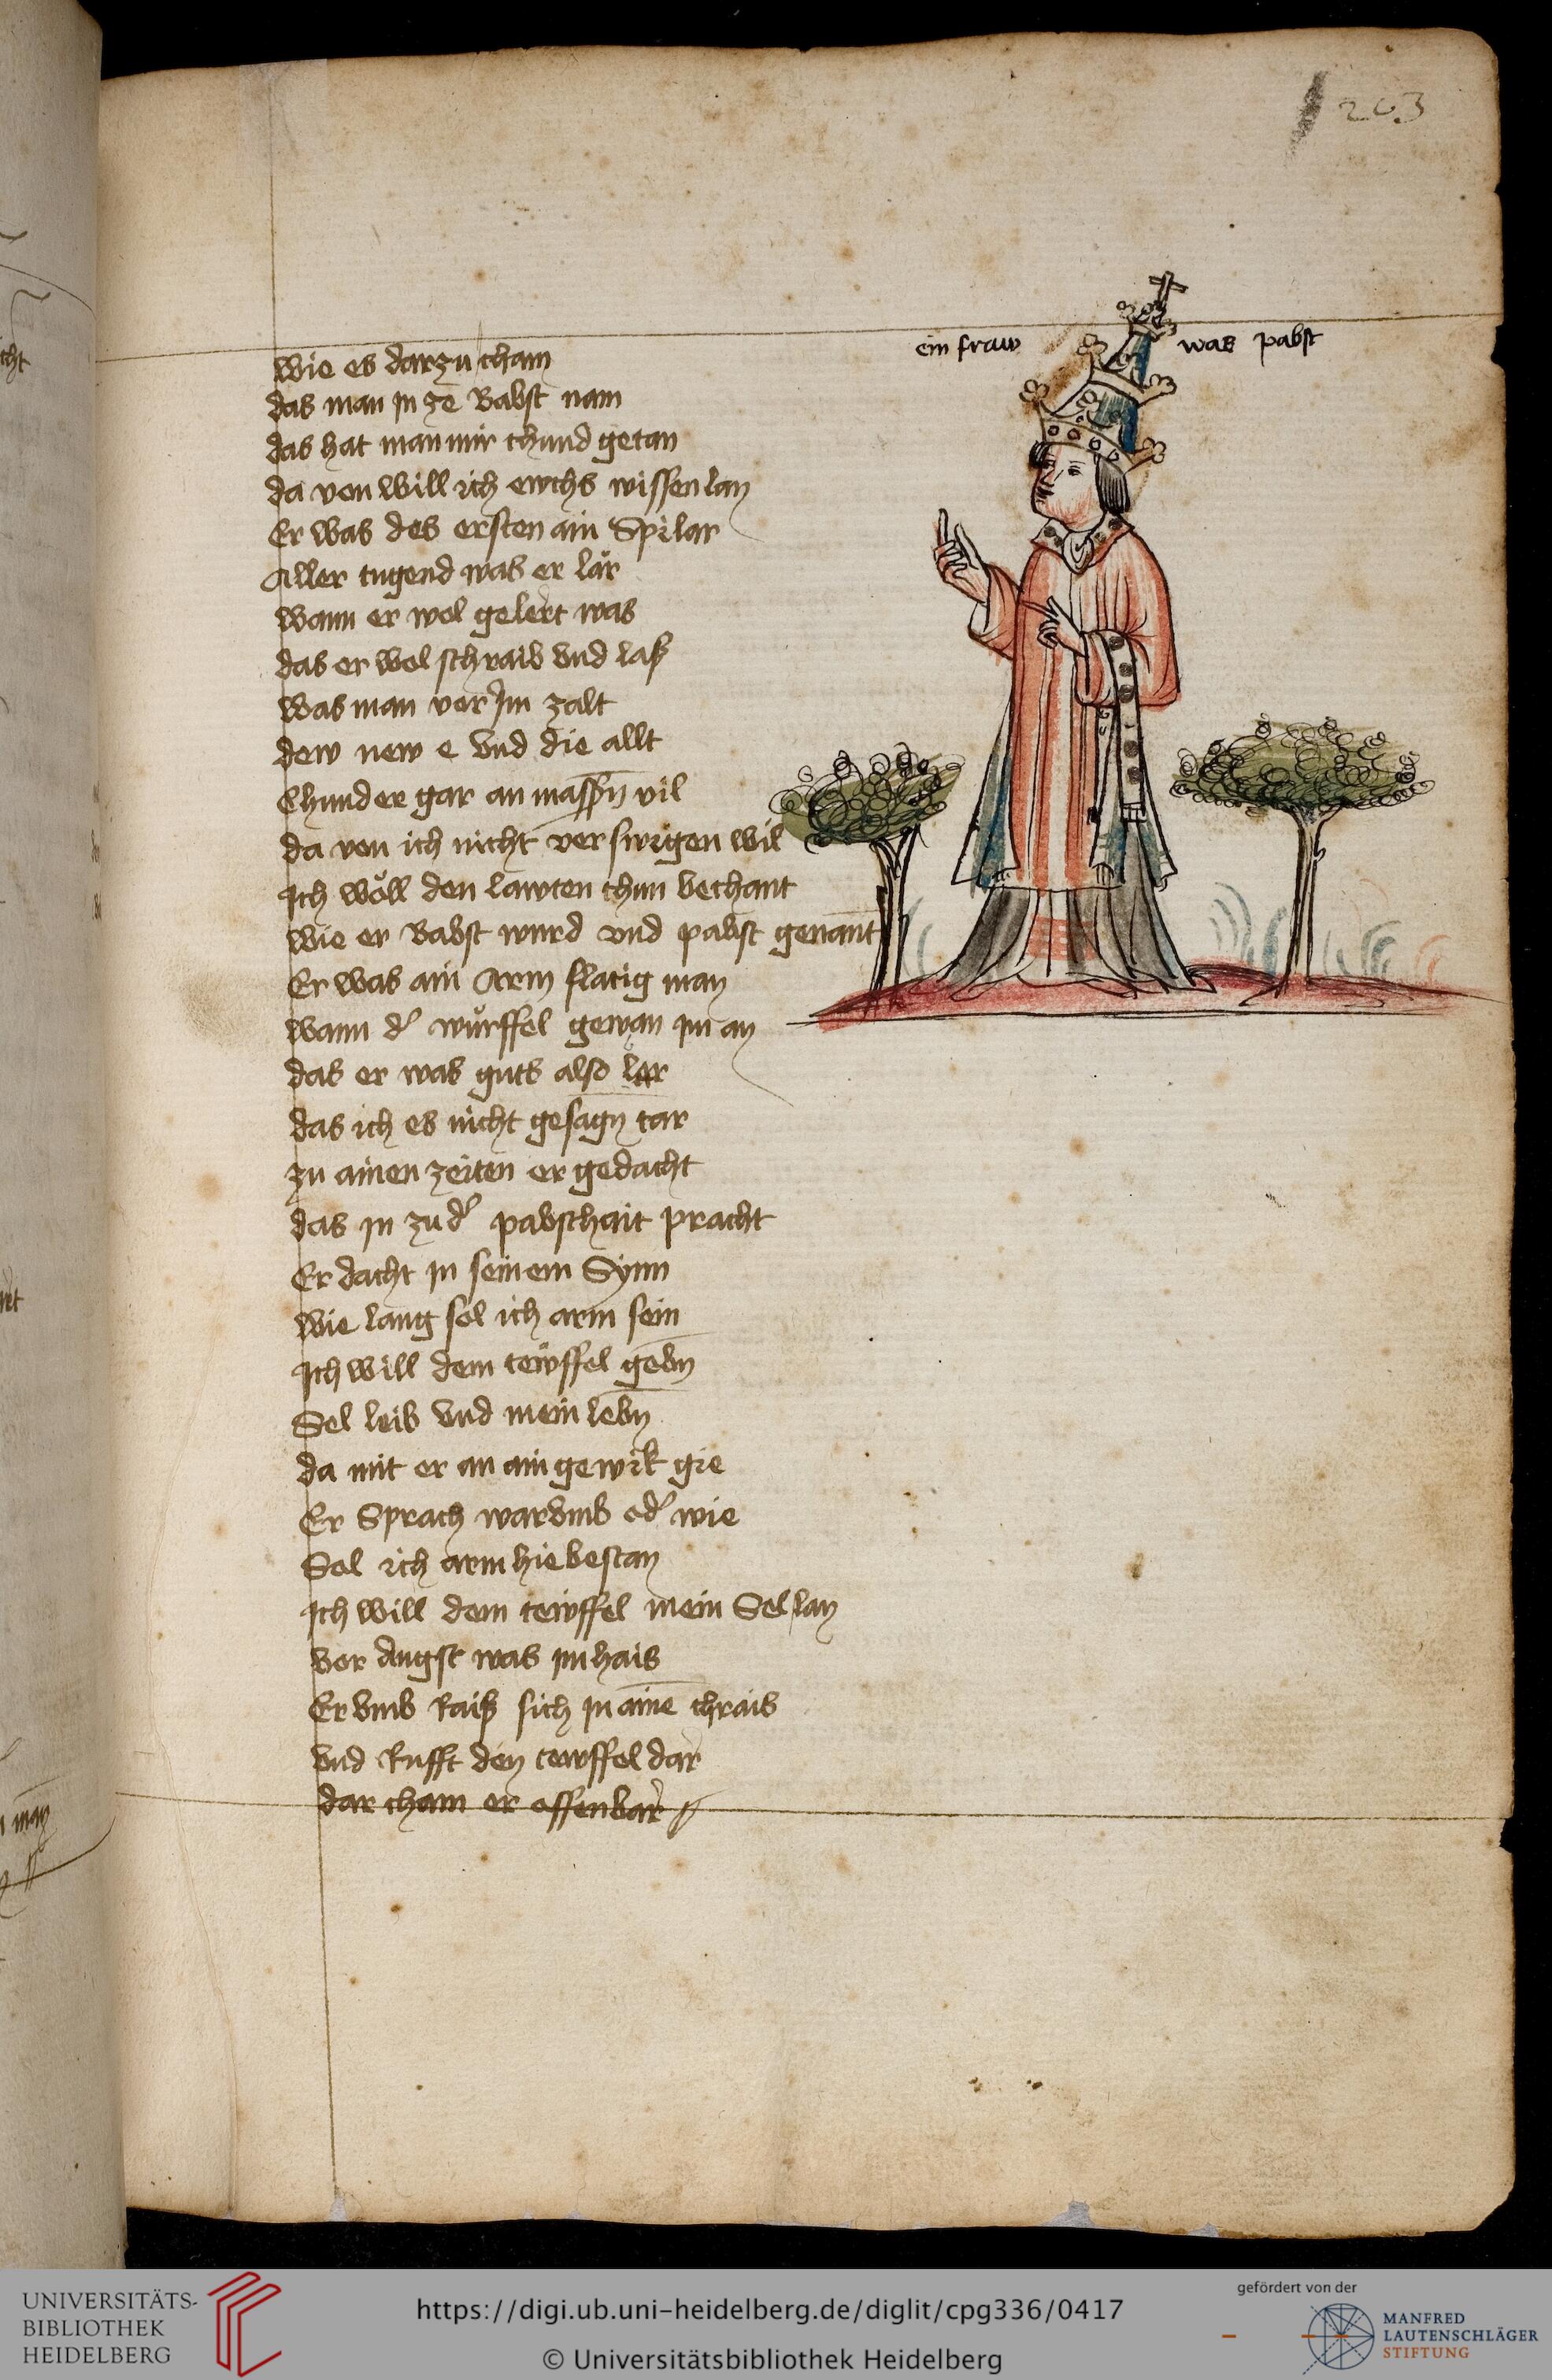 203
ein fraw was pabst
wie es darzu cham
das man in ze Babst nam
das hat man mir chund getan
da von will ich ewchs wissen lan
Er was des ersten ain Spilar
Aller tugend was er lär
wann er wol gelert was
das er wol schraib vnd laß
was man vor Im zalt
dew new e vnd die allt
Chund er gar an massn vil
da von ich nicht verswigen wil
Ich wöll den lawten chun bechant
wie er Babst wurd vnd pabst genant
Er was ain Arm flatig man
wann d' würffel gewan im an
das er was guts also ler
das ich es nicht gesagn tar
zu ainen zeiten er gedacht
das in zu d' pabschait pracht
Er dacht in seinem Synn
wie lang sol ich arm sein
Ich will dem tewffel gebn
Sel leib vnd mein lebn
da mit er an ain gewik gie
Er Sprach warvmb od' wie
Sol ich arm hie bestan
Ich will dem tewffel mein Sel lan
vor Angst was im hais
Er vmb Raiß sich in aine chrais
vnd Rufft den tewffel dar
dar cham er offenbar
UNIVERSITÄTS-
BIBLIOTHEK
HEIDELBERG
https://digi.ub.uni-heidelberg.de/diglit/cpg336/0417
© Universitätsbibliothek Heidelberg
gefördert von der
MANFRED
LAUTENSCHLÄGER
STIFTUNG